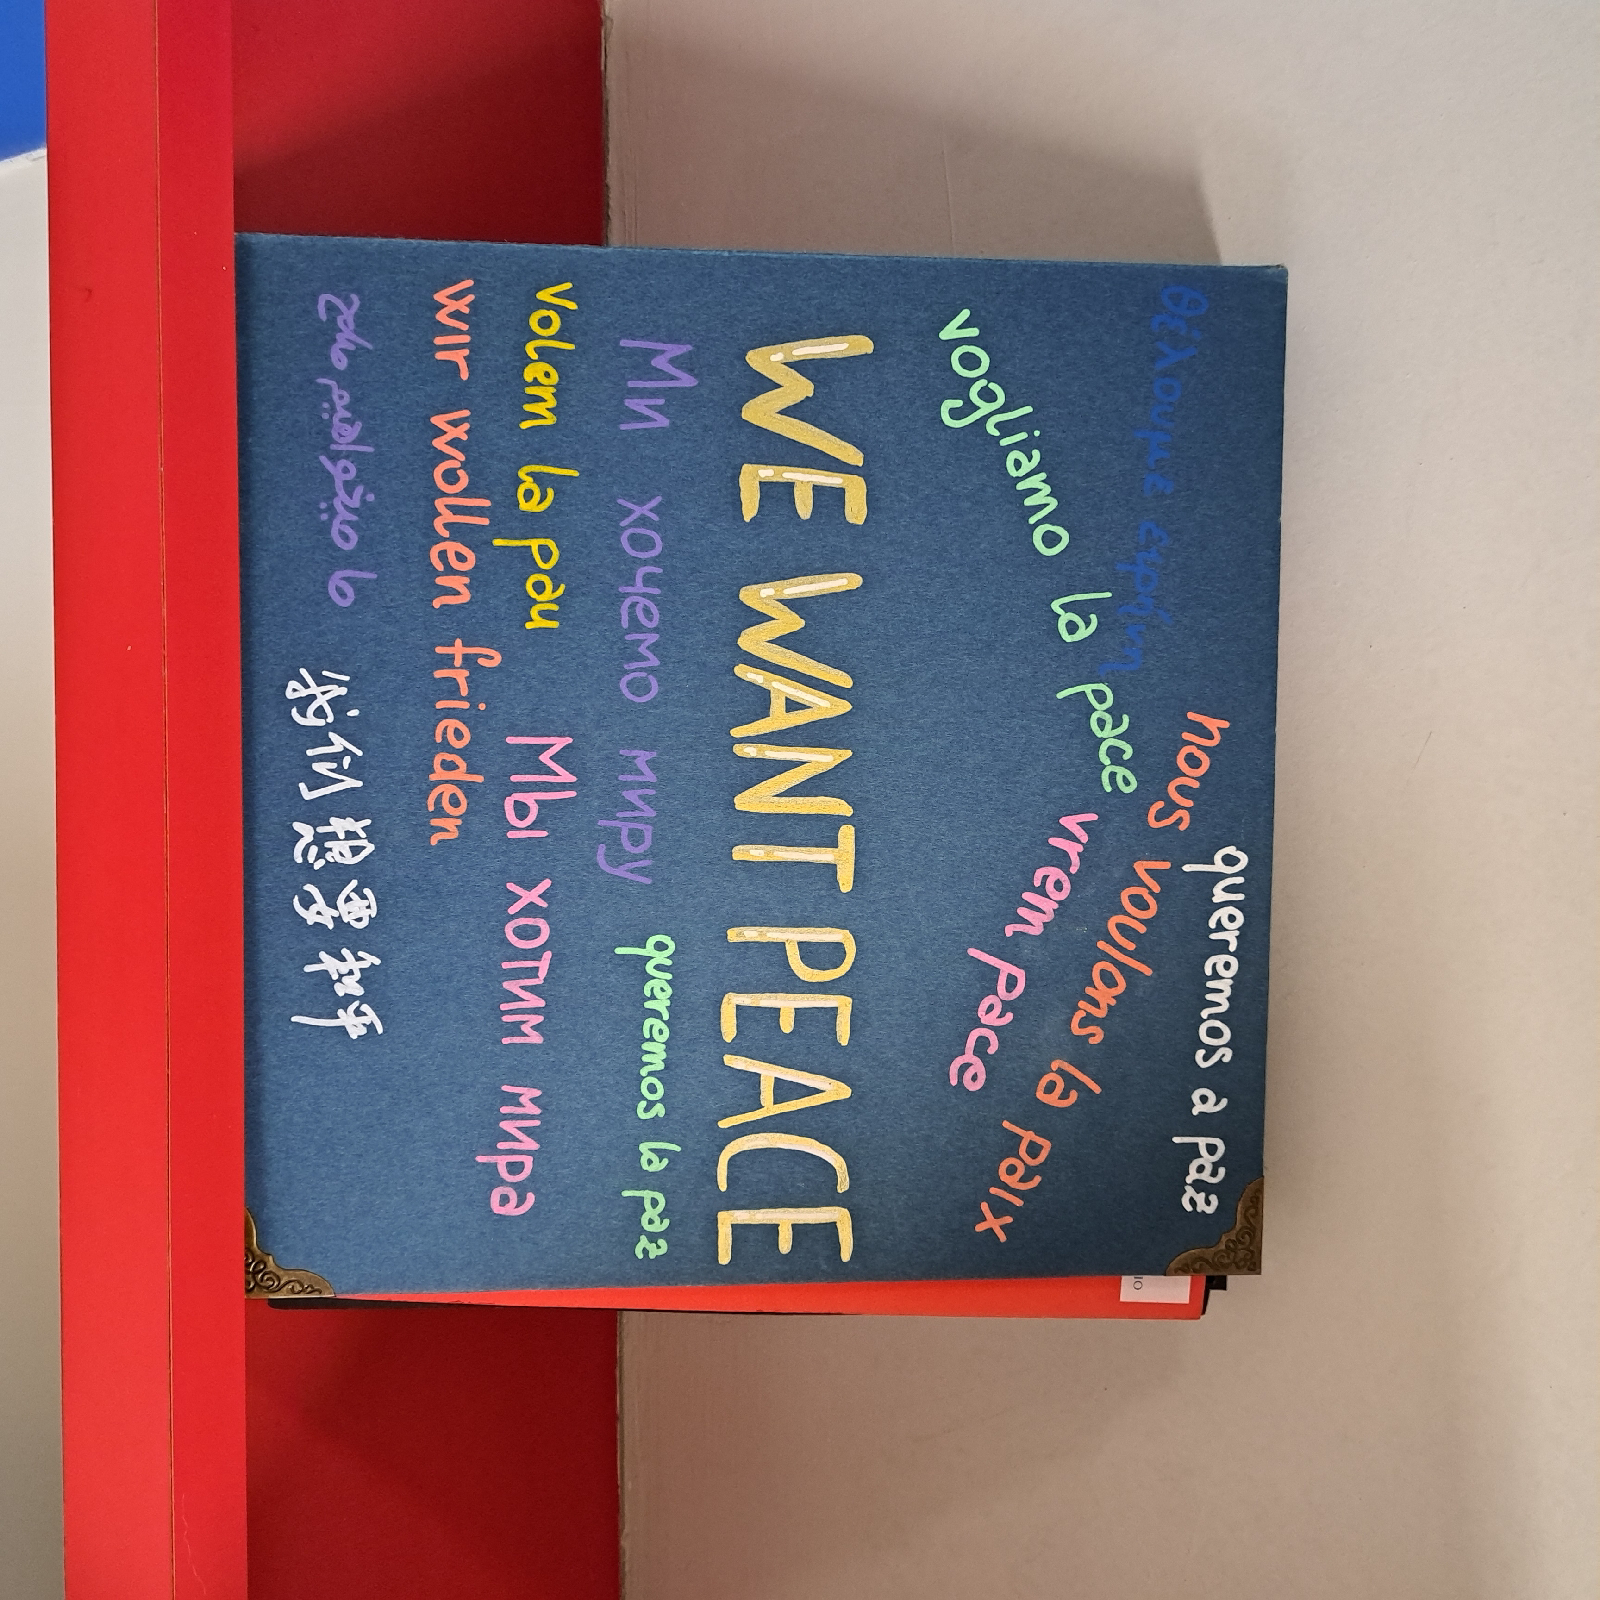 Θέλουμε ειρήνη
queremos a paz
nous voulons la paix
vogliamo la pace
vrem pace
WE WANT PEACE
Ми хочемо миру
queremos la paz
volem la pau
Мы хотим мира
wir wollen frieden
ما میخواهیم صلح
我们想要和平